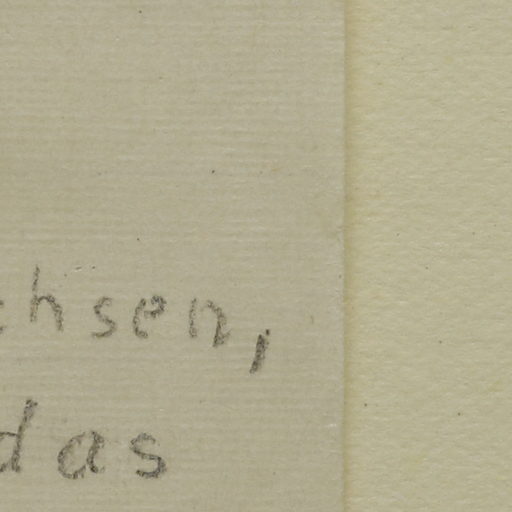 chsen,
das